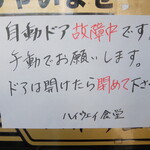 自動ドア故障中です
手動でお願いします。
ドアは開けたら閉めて下さ
ハイウェイ食堂